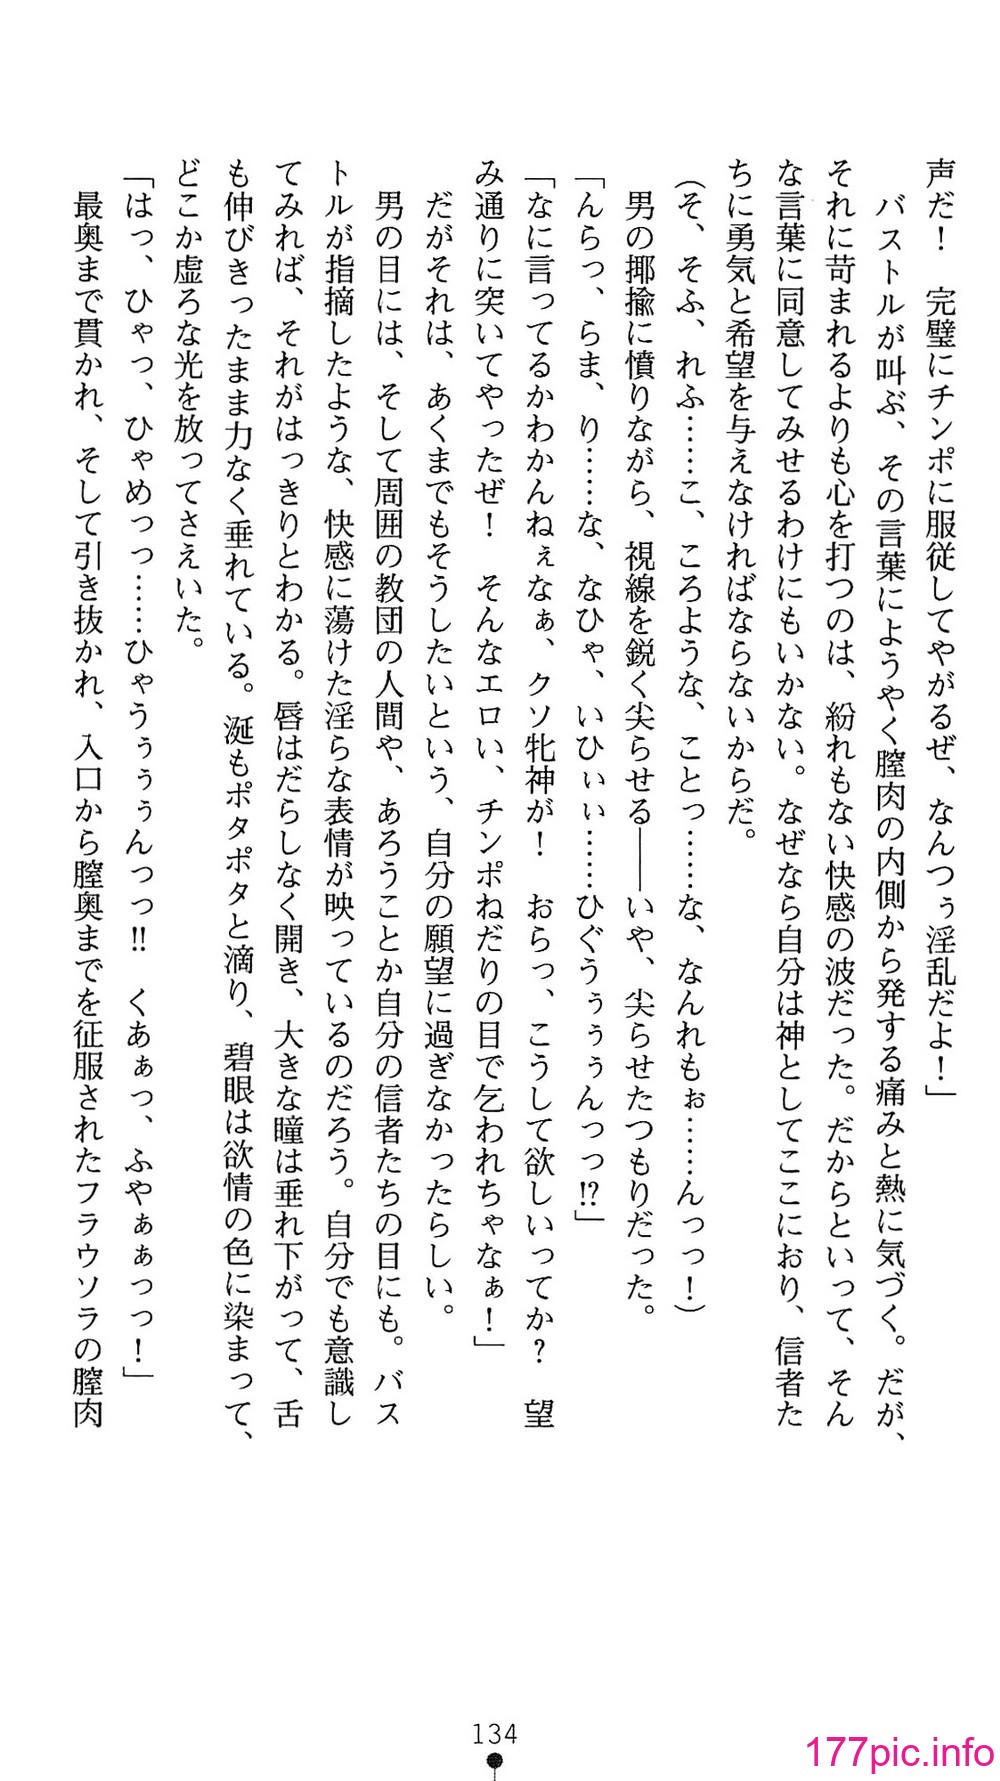 声だ！　完璧にチンポに服従してやがるぜ、なんつぅ淫乱だよ！」
　バストルが叫ぶ、その言葉にようやく膣肉の内側から発する痛みと熱に気づく。だが、
それに苛まれるよりも心を打つのは、紛れもない快感の波だった。だからといって、そん
な言葉に同意してみせるわけにもいかない。なぜなら自分は神としてここにおり、信者た
ちに勇気と希望を与えなければならないからだ。
（そ、そふ、れふ……こ、ころような、ことっ……な、なんれもぉ……んっっ！）
　男の揶揄に憤りながら、視線を鋭く尖らせる――いや、尖らせたつもりだった。
「んらっ、らま、り……な、なひゃ、いひぃぃ……ひぐうぅぅぅんっっ⁉」
「なに言ってるかわかんねぇなぁ、クソ牝神が！　おらっ、こうして欲しいってか？　望
み通りに突いてやったぜ！　そんなエロい、チンポねだりの目で乞われちゃなぁ！」
　だがそれは、あくまでもそうしたいという、自分の願望に過ぎなかったらしい。
　男の目には、そして周囲の教団の人間や、あろうことか自分の信者たちの目にも。バス
トルが指摘したような、快感に蕩けた淫らな表情が映っているのだろう。自分でも意識し
てみれば、それがはっきりとわかる。唇はだらしなく開き、大きな瞳は垂れ下がって、舌
も伸びきったまま力なく垂れている。涎もポタポタと滴り、碧眼は欲情の色に染まって、
どこか虚ろな光を放ってさえいた。
「はっ、ひゃっ、ひゃめっっ……ひゃうぅぅぅんっっ‼　くあぁっ、ふやぁぁっっ！」
　最奥まで貫かれ、そして引き抜かれ、入口から膣奥までを征服されたフラウソラの膣肉
134
177pic.info